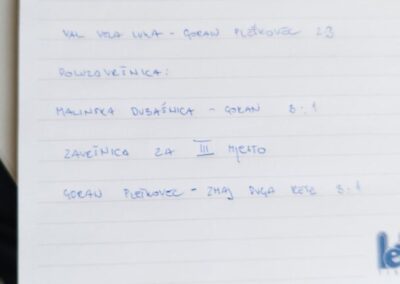 VAL VELA LUKA - GORAN PLEŠKOVEC 2:3
POLUZAVRŠNICA:
MALINSKA DUBAŠNICA - GORAN 3:1
ZAVRŠNICA ZA III MJESTO
GORAN PLEŠKOVEC - ZMAJ DUGA RESA 3:1